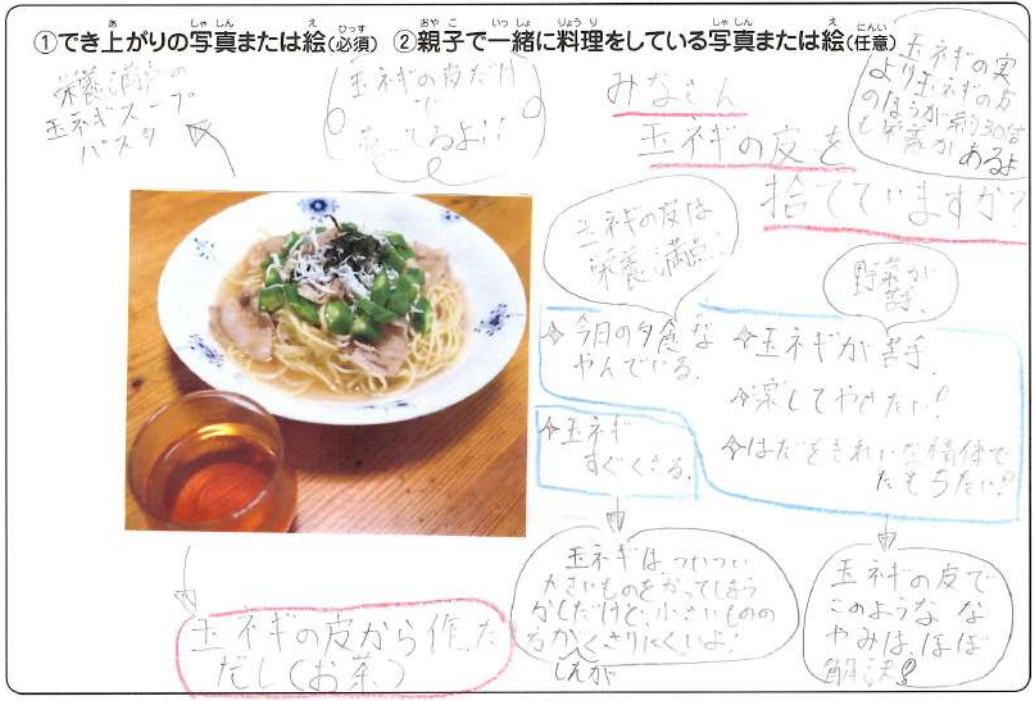 ①でき上がりの写真または絵(必須) ②親子で一緒に料理をしている写真または絵(任意)
栄養満点の
玉ネギスープ
パスタ
玉ネギの皮だけ
で
売ってるよ!!
みなさん
玉ネギの皮を
捨てていますか?
玉ネギの実
より玉ネギの方
のほうが約30倍
も栄養が
あるよ
玉ネギの皮は
栄養満点!
野菜が
苦手、
今日の夕食な
やんでいる。
玉ネギ
すぐくさる。
玉ネギが苦手。
楽してやせたい!
はだをきれいな
たもちたい!
玉ネギは、ついつい
大きいものをかってしまう
かしだけど、小さいものの
方がくさりにくいよ!
しんが
玉ネギの皮で
このような な
やみは、ほぼ
解決!
玉ネギの皮から作った
だし(お茶)